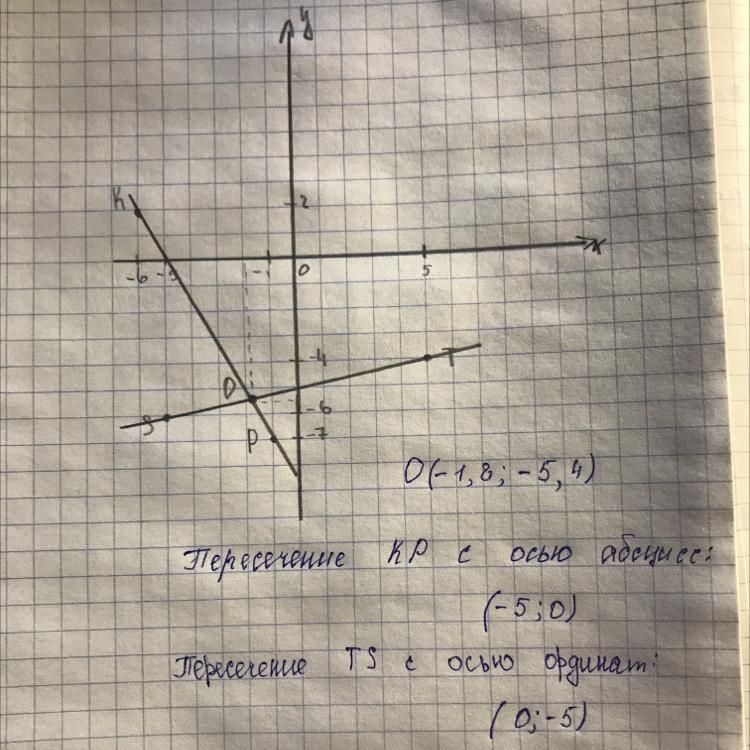 y
K
2
-6 -5 -1 0 5 x
-4
T
O
-6
S
P -7
O(-1,8; -5,4)
Пересечение KP с осью абсцисс:
(-5;0)
Пересечение TS с осью ординат:
(0;-5)